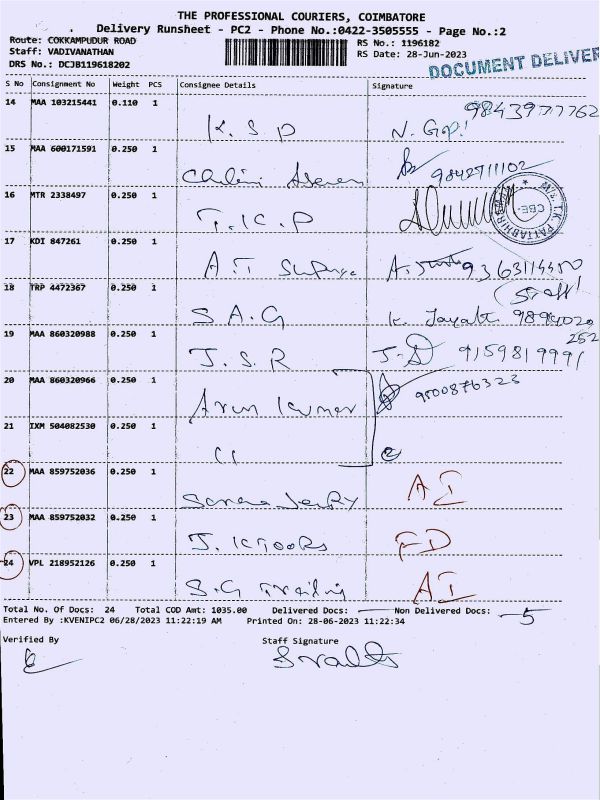 THE PROFESSIONAL COURIERS, COIMBATORE
Delivery Runsheet - PC2 - Phone No.:0422-3505555 - Page No.:2
Route: COKKAMPUDUR ROAD
RS No.: 1196182
Staff: VADIVANATHAN
RS Date: 28-Jun-2023
DRS No.: DCJB119618202
DOCUMENT DELIVER
S No Consignment No Weight PCS Consignee Details Signature
14 MAA 103215441 0.110 1
9843977762
K.S.P N. Gopi
15 MAA 600171591 0.250 1
9842711102
16 MTR 2338497 0.250 1
T.K.P
M/s. T.K. PATTABHIR CBE-
17 KDI 847261 0.250 1
A.T
18 TRP 4472367 0.250 1
S.A.G K.
19 MAA 860320988 0.250 1
J.S.R J.S 9159819991
252
20 MAA 860320966 0.250 1
9500876323
Arun Kumar
21 IXM 504082530 0.250 1
22 MAA 859752036 0.250 1
AI
23 MAA 859752032 0.250 1
FD
24 VPL 218952126 0.250 1
S.G AI
Total No. Of Docs: 24 Total COD Amt: 1035.00 Delivered Docs: Non Delivered Docs: 5
Entered By :KVENIPC2 06/28/2023 11:22:19 AM Printed On: 28-06-2023 11:22:34
Verified By Staff Signature